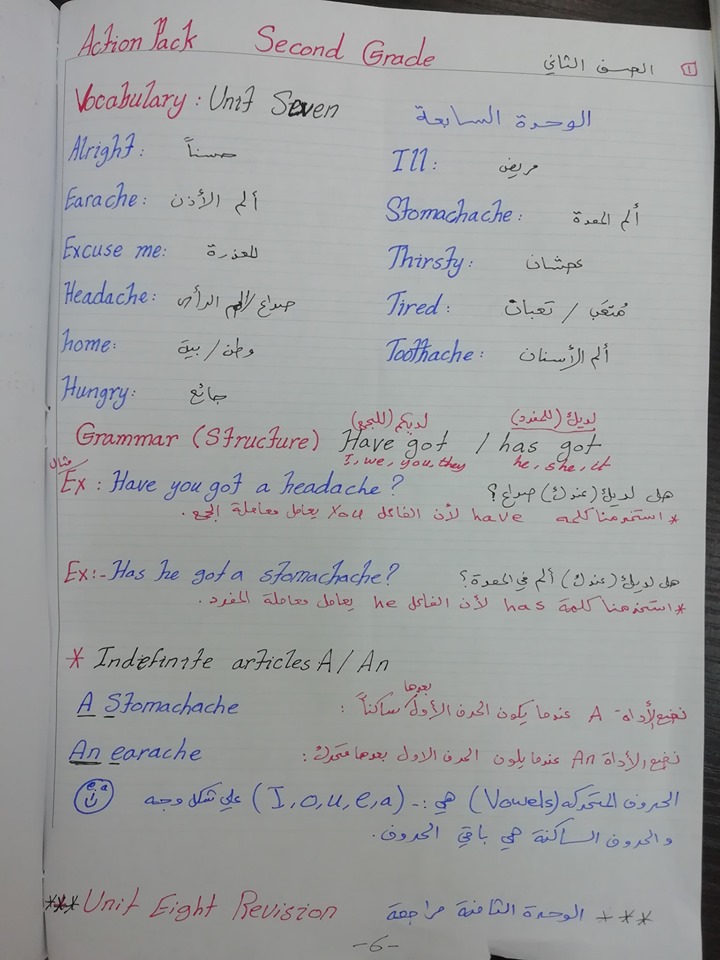 Action Pack Second Grade الصف الثاني 1
Vocabulary : Unit Seven الوحدة السابعة
Alright: حسناً
Ill: مريض
Earache: ألم الأذن
Stomachache: ألم المعدة
Excuse me: المعذرة
Thirsty: عطشان
Headache: صداع / ألم الرأس
Tired: مُتعَب / تعبان
home: وطن / بيت
Toothache: ألم الأسنان
Hungry: جائع
لديكم (للجمع) لديك (للمفرد)
Grammar (Structure) Have got / has got
I, we, you, they he, she, it
مثال
Ex: Have you got a headache? هل لديك (عندك) صداع؟
* استخدمنا كلمة have لأن الفاعل You يعامل معاملة الجمع.
Ex:- Has he got a stomachache? هل لديك (عندك) ألم في المعدة؟
* استخدمنا كلمة has لأن الفاعل he يعامل معاملة المفرد.
* Indefinite articles A / An
A Stomachache نضع الأداة A عندما يكون الحرف الأول بعدها ساكناً :
An earache نضع الأداة An عندما يكون الحرف الاول بعدها متحرك :
e a الحروف المتحركة (Vowels) هي :- (I, o, u, e, a) على شكل وجه
والحروف الساكنة هي باقي الحروف.
*** Unit Eight Revision الوحدة الثامنة مراجعة ***
-6-